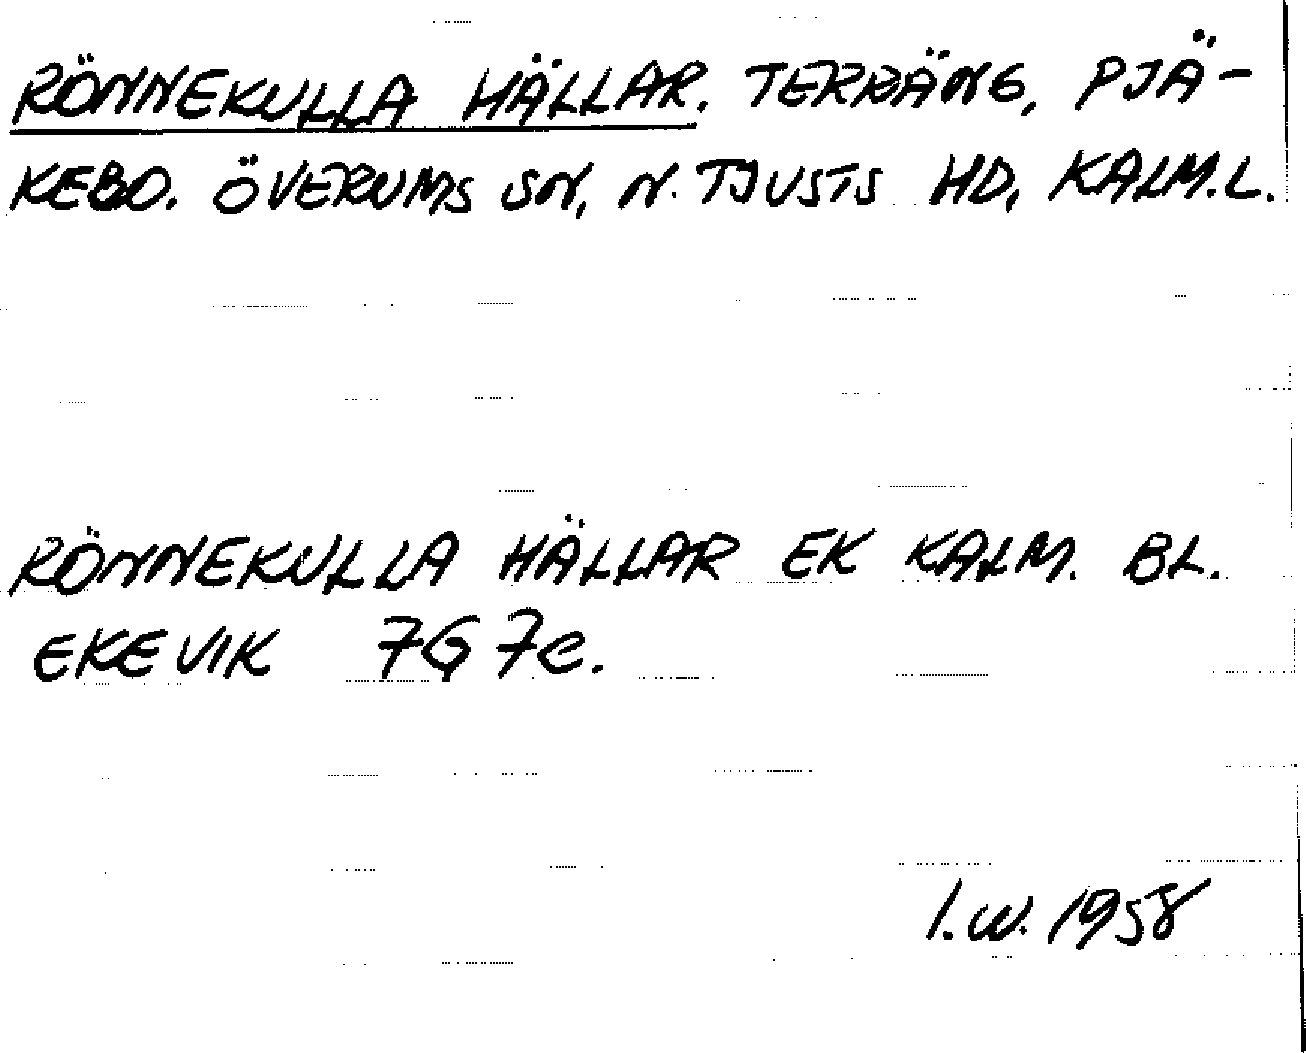 RÖNNEKULLA HÄLLAR. TERRÄNG, PJÄ-
KEBO. ÖVERUMS SN, N. TJUSTS HD, KALM.L.
RÖNNEKULLA HÄLLAR EK KALM. BL.
EKEVIK 7G 7c.
I.W. 1958